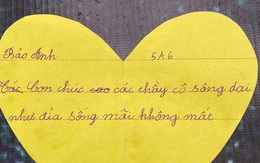 Bảo Anh 5A6
Các Con chúc các thầy cô sống dai
như đỉa sống mãi không mất